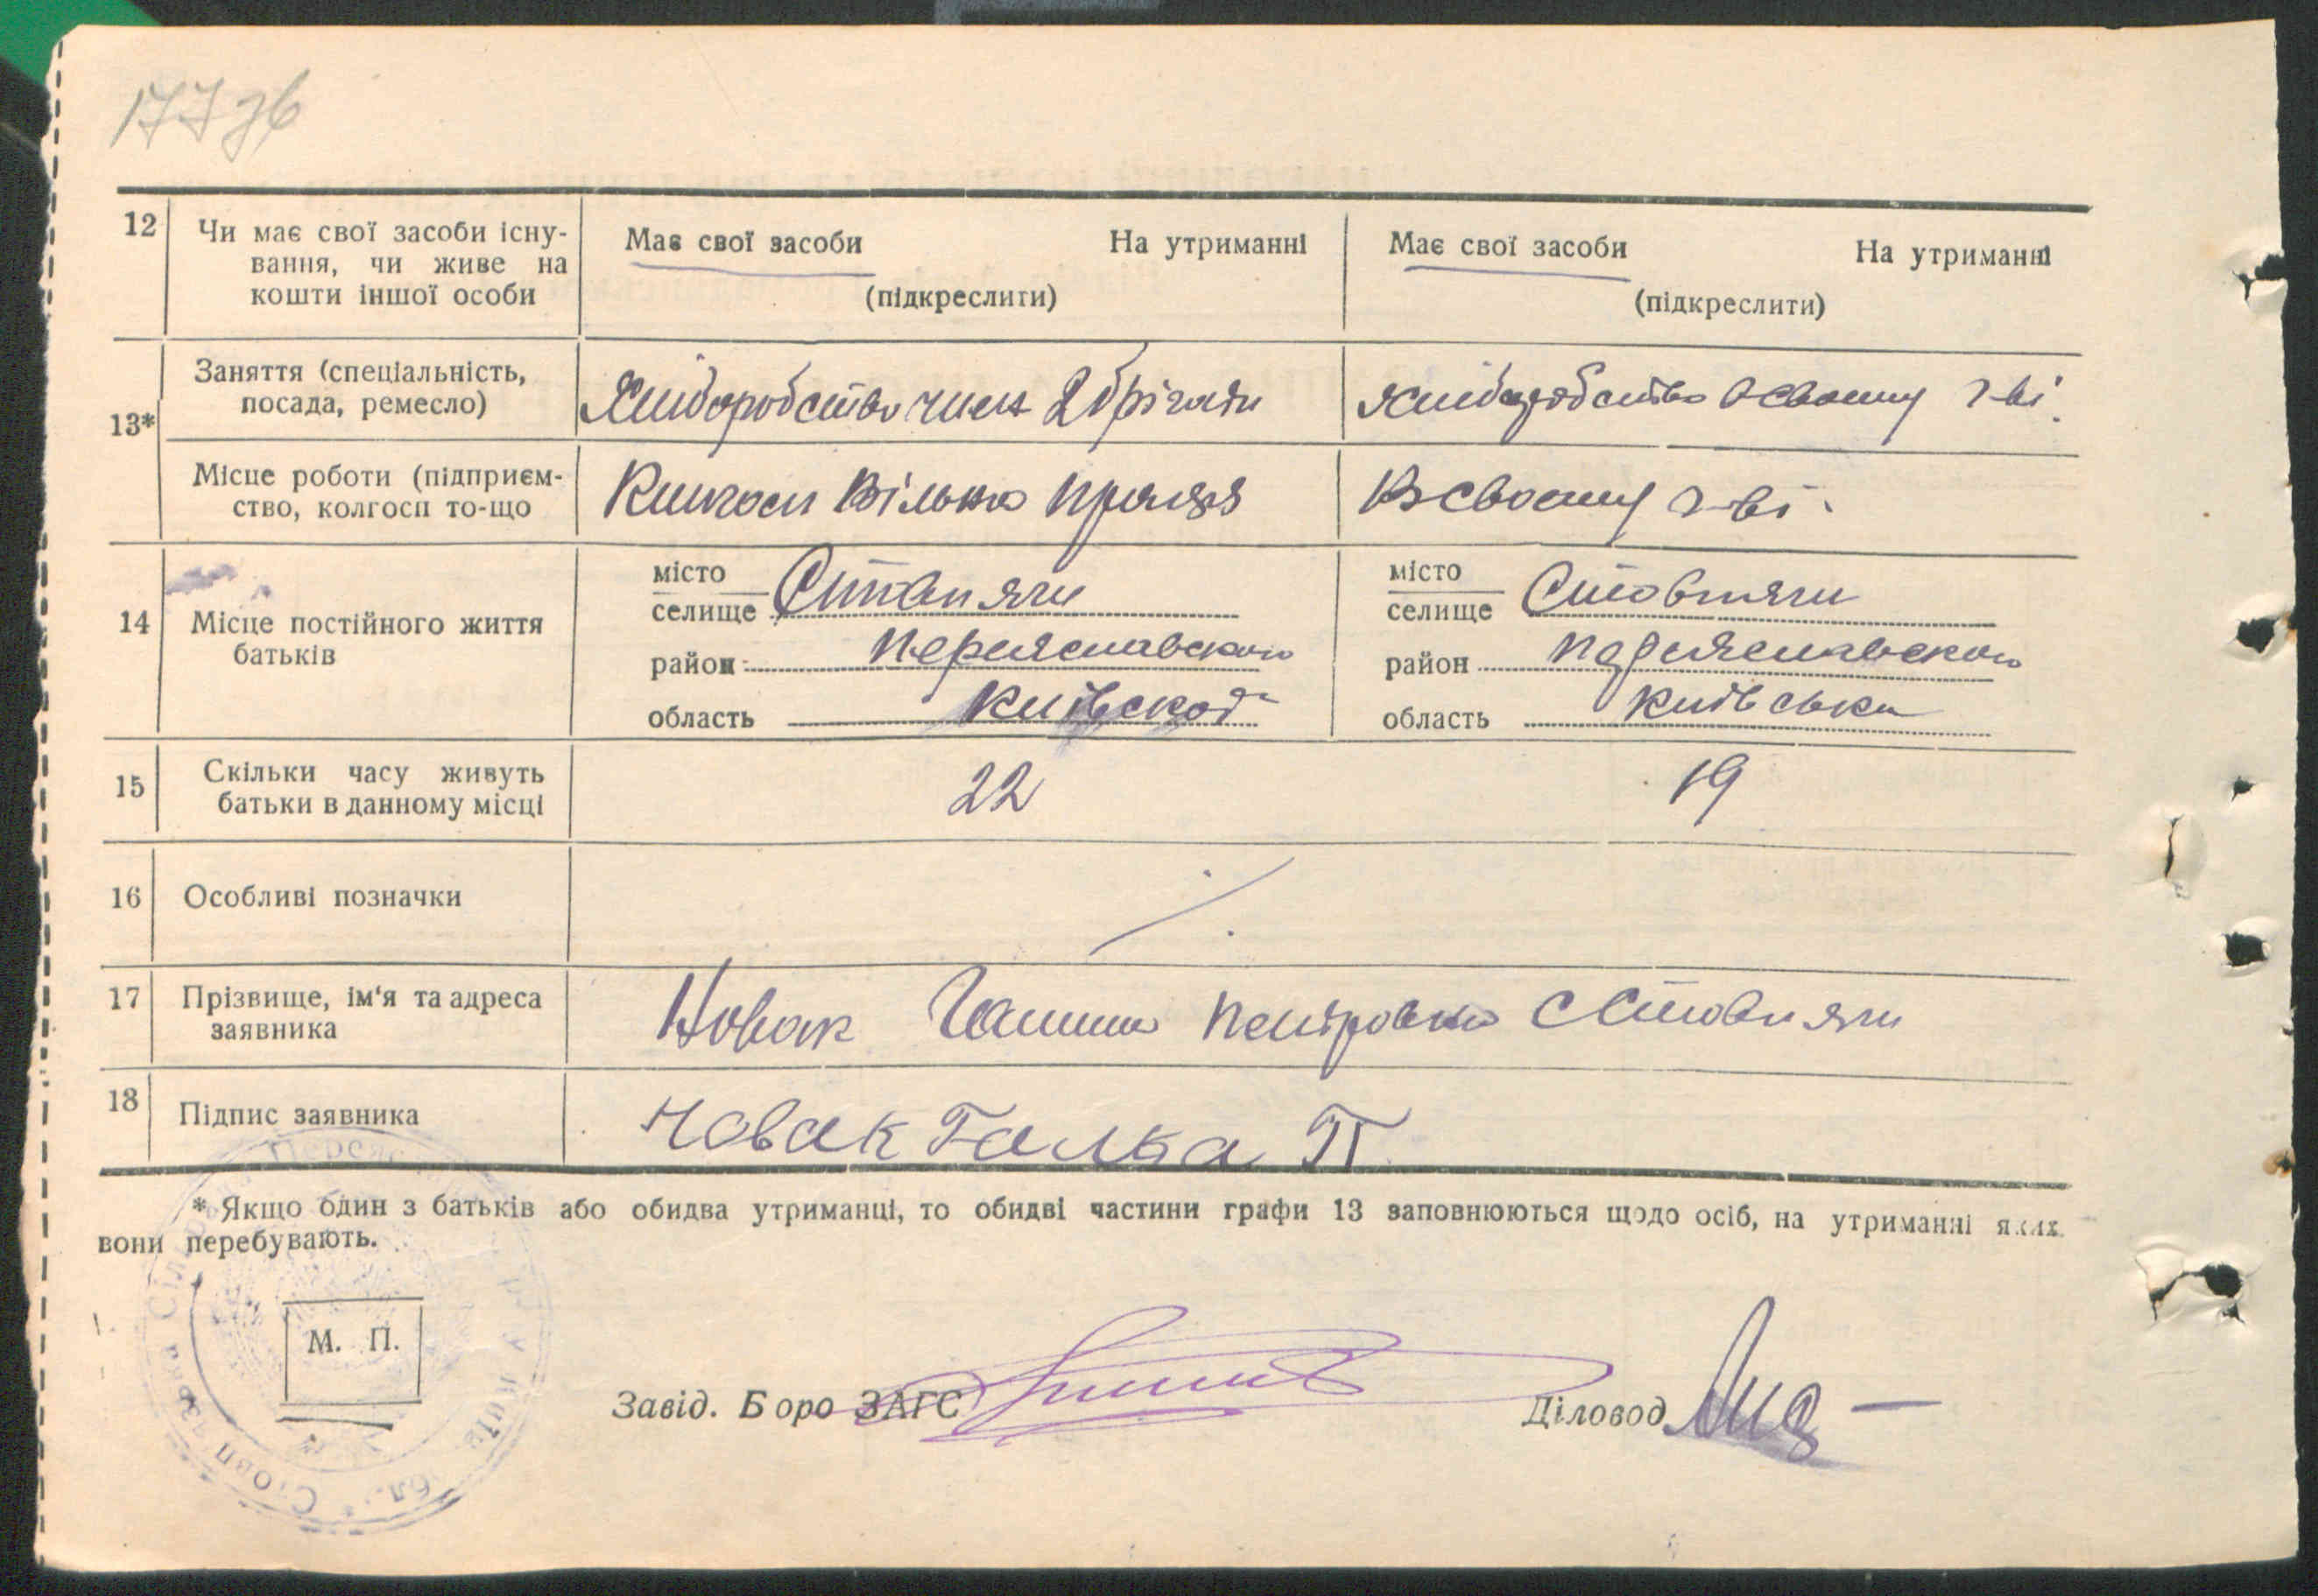 177зв
12 Чи має свої засоби існу-
вання, чи живе на
кошти іншої особи
Має свої засоби На утриманні
(підкреслити)
Має свої засоби На утриманні
(підкреслити)
13*
Заняття (спеціальність,
посада, ремесло)
Хліборобство член 2 брігади
хліборобство в своему г-ві.
Місце роботи (підприєм-
ство, колгосп то-що
Колгосп Вільна праця
В своему г-ві.
14 Місце постійного життя
батьків
місто
селище Стовпяги
район Переяславського
область Київской
місто
селище Стовпяги
район Переяславського
область Київська
15 Скільки часу живуть
батьки в данному місці
22
19
16 Особливі позначки
17 Прізвище, ім'я та адреса
заявника
Новак Ганна Петровна с Стовпяги
18 Підпис заявника
Новак Галка П
* Якщо один з батьків або обидва утриманці, то обидві частини графи 13 заповнюються щодо осіб, на утриманні яких
вони перебувають.
М. П.
Завід. Боро ЗАГС
Діловод